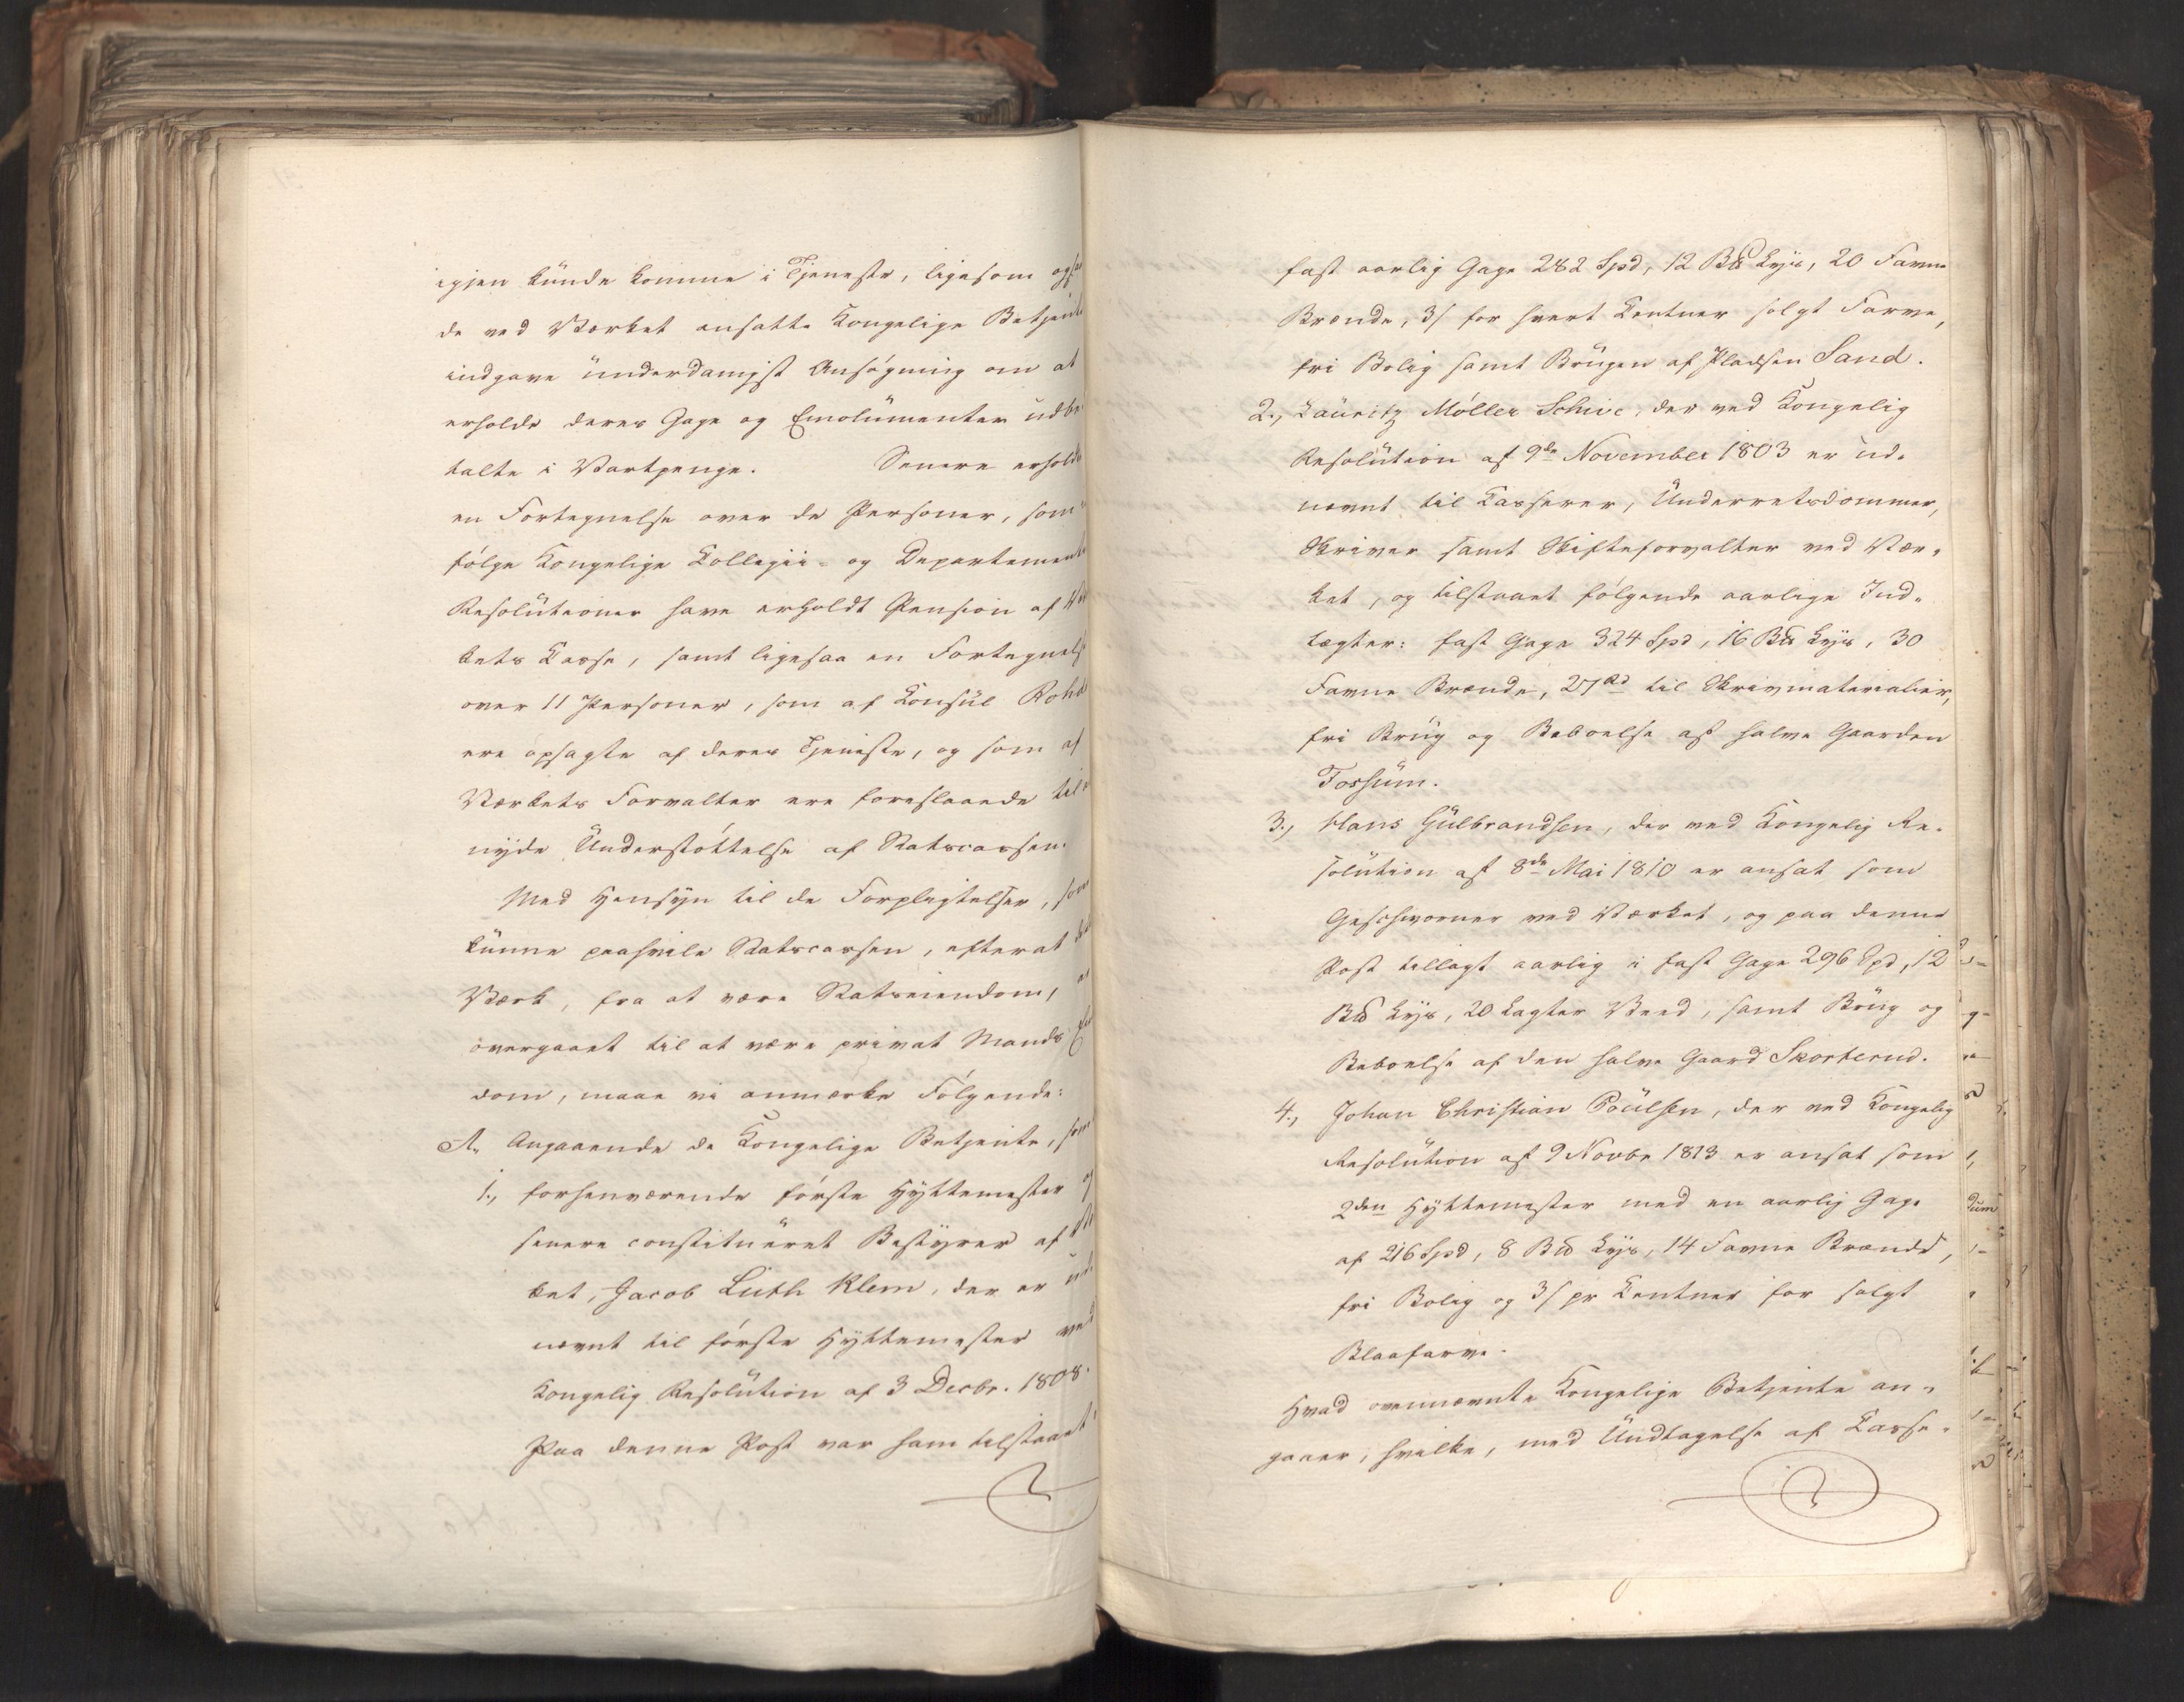 igjen kunde komme i Tjeneste, ligesom og
de ved Værket ansatte Kongelige Betjente
indgave underdanigst Ansøgning om at
erholde deres Gage og Emolumenter udbe-
talte i Vartpenge. Senere erholdt
en Fortegnelse over de Personer, som
følge Kongelige Collegii- og Departements
Resolutioner have erholdt Pension af
kets Casse, samt ligesaa en Fortegnelse
over 11 Personer, som af Consul Rohde
ere opsagte af deres Tjeneste, og som af
Værkets Forvalter ere foreslaaede til
nyde Understøttelse af Statscassen.
Med Hensyn til de Forpligtelser, som
kunne paahvile Statscassen, efterat
Værk, fra at være Statseiendom,
overgaaet til at være privat Mands
dom, maae vi anmærke Følgende:
A. Angaaende de Kongelige Betjente, som
1., forhenværende første Hyttemester og
senere constitueret Bestyrer af
ket, Jacob Lüth Klem, der er ud-
nævnt til første Hyttemester ved
Kongelig Resolution af 3 Decbr. 1808.
Paa denne Post var ham tilstaaet
fast aarlig Gage 282 Spd, 12 B℔ Lys, 20 Favne
Brænde, 3/ for hvert Centner solgt Farve,
fri Bolig samt Brugen af Pladsen Sand.
2., Lauritz Møller Schive, der ved Kongelig
Resolution af 9de November 1803 er ud-
nævnt til Casserer, Underretsdommer,
Skriver samt Skifteforvalter ved Vær-
ket, og tilstaaet følgende aarlige Ind-
tægter: fast Gage 324 Spd, 16 B℔ Lys, 30
Favne Brænde, 27 Rd til Skrivmaterialier,
fri Brug og Beboelse af halve Gaarden
Fossum.
3., Hans Gulbrandsen, der ved Kongelig Re-
solution af 8de Mai 1810 er ansat som
Geschworner ved Værket, og paa denne
Post tillagt aarlig i fast Gage 296 Spd, 12
B℔ Lys, 20 Lagter Veed, samt Brug og
Beboelse af den halve Gaard Skorterud.
4., Johan Christian Poulsen, der ved Kongelig
Resolution af 9 Novbr 1813 er ansat som
2den Hyttemester med en aarlig Gage
af 216 Spd, 8 B℔ Lys, 14 Favne Brænde,
fri Bolig og 3/ pr Centner for solgt
Blaafarve.
Hvad ovennævnte Kongelige Betjente an-
gaaer, hvilke, med Undtagelse af Casse-